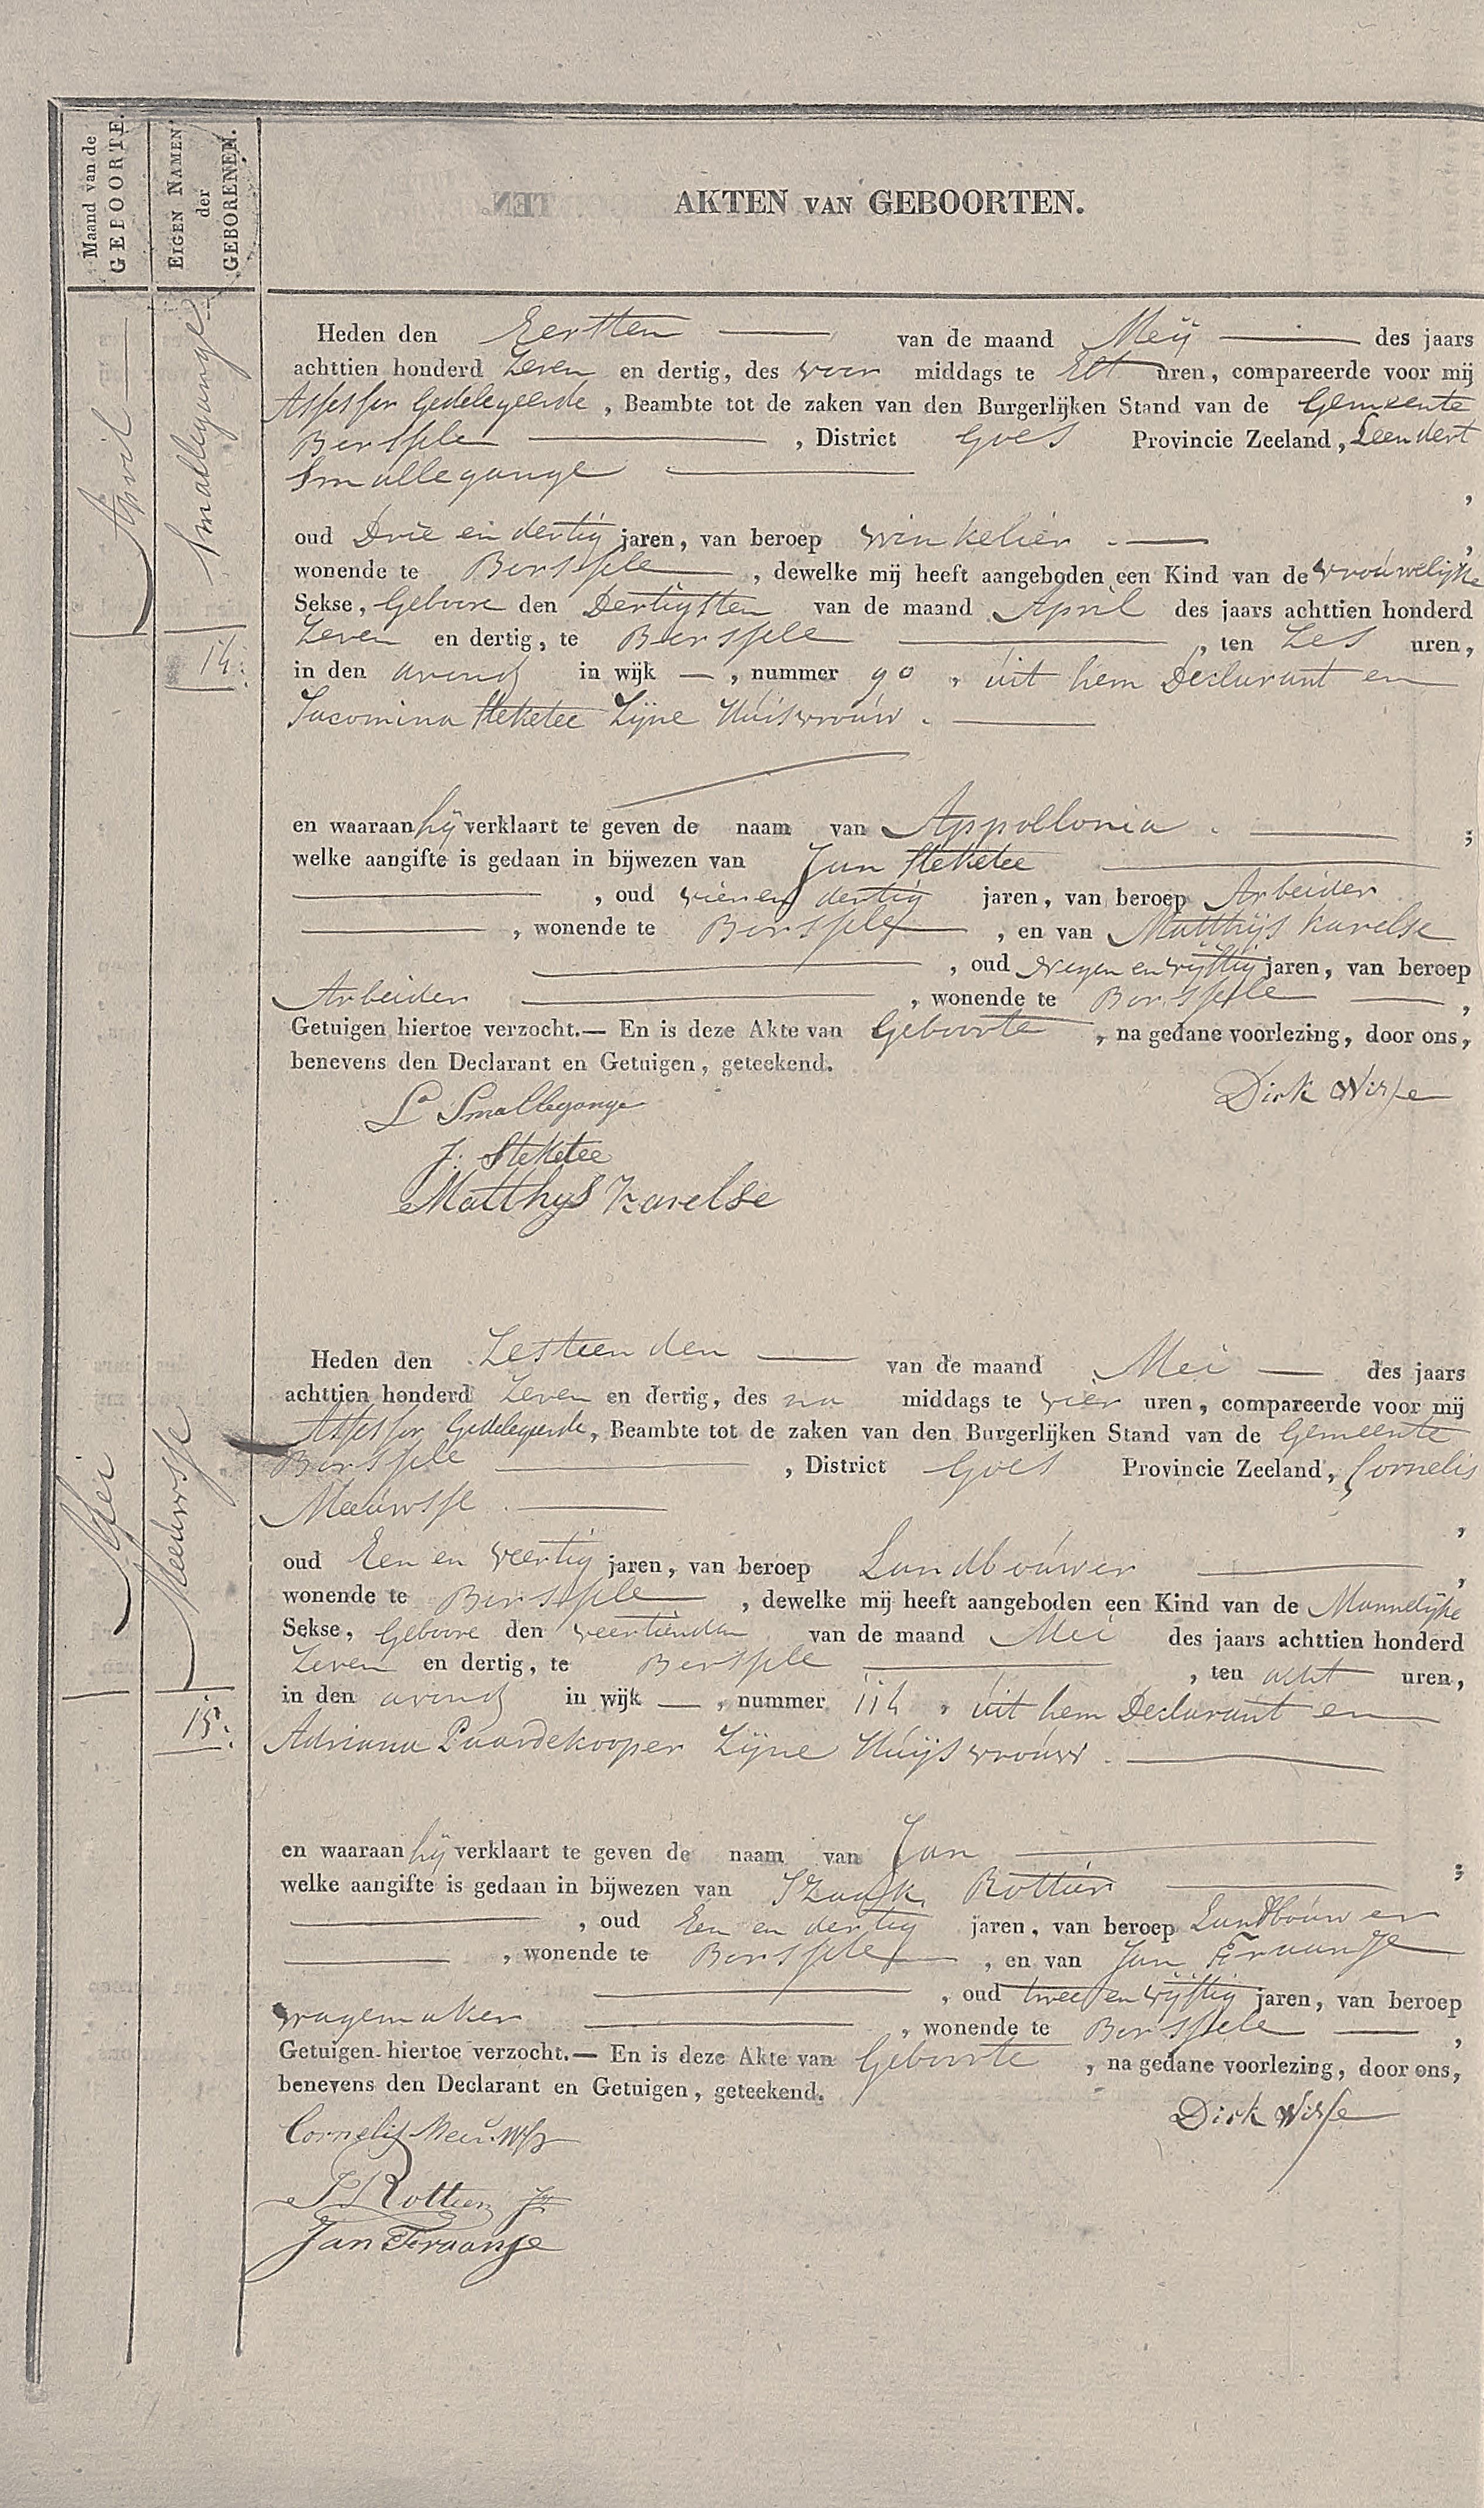 Maand van de
GEPOORTE.
EIGEN NAMEN
der
GEBORENEN.
AKTEN VAN GEBOORTEN.
April
Smallegange
14.
Heden den Eersten van de maand Meij des jaars
achttien honderd Zeven en dertig, des voor middags te Elf uren, compareerde voor mij
Assessor Gedelegeerde, Beambte tot de zaken van den Burgerlijken Stand van de Gemeente
Borssele, District Goes Provincie Zeeland, Leendert
Smallegange ,
oud Drie en dertig jaren, van beroep winkelier ,
wonende te Borssele, dewelke mij heeft aangeboden een Kind van de vrouwelijke
Sekse, Geboore den Dertigsten van de maand April des jaars achttien honderd
Zeven en dertig, te Borssele, ten Zes uren,
in den avond in wijk —, nummer 90, uit hem Declarant en
Jacomina Steketee Zijne Huisvrouw.
en waaraan hij verklaart te geven de naam van Appollonia. ;
welke aangifte is gedaan in bijwezen van Jan Steketee
, oud vier en dertig jaren, van beroep Arbeider
, wonende te Borssele, en van Matthijs Karelse
, oud Negen en vijftig jaren, van beroep
Arbeider, wonende te Borssele ,
Getuigen hiertoe verzocht.— En is deze Akte van Geboorte, na gedane voorlezing, door ons,
benevens den Declarant en Getuigen, geteekend.
Dirk Wisse
Ld Smallegange
J: Steketee
Matthys Karelse
Mei
Meeuwsse
15.
Heden den Zestienden van de maand Mei des jaars
achttien honderd Zeven en dertig, des na middags te vier uren, compareerde voor mij
Assessor Gedelegeerde, Beambte tot de zaken van den Burgerlijken Stand van de Gemeente
Borssele, District Goes Provincie Zeeland, Cornelis
Meeuwsse. ,
oud Een en veertig jaren, van beroep Landbouwer ,
wonende te Borssele, dewelke mij heeft aangeboden een Kind van de Mannelijke
Sekse, Geboore den veertienden van de maand Mei des jaars achttien honderd
Zeven en dertig, te Borssele, ten acht uren,
in den avond in wijk —, nummer 114, uit hem Declarant en
Adriana Paardekooper Zijne Huijsvrouw.
en waaraan hij verklaart te geven de naam van Jan ;
welke aangifte is gedaan in bijwezen van Izaak Rottier
, oud Een en dertig jaren, van beroep Landbouwer
, wonende te Borssele, en van Jan Fraanje
, oud twee en vijftig jaren, van beroep
wagemaker, wonende te Borssele ,
Getuigen hiertoe verzocht.— En is deze Akte van Geboorte, na gedane voorlezing, door ons,
benevens den Declarant en Getuigen, geteekend.
Dirk Wisse
Cornelis Meeuwsse
J Rottier Jz
Jan Fraanje